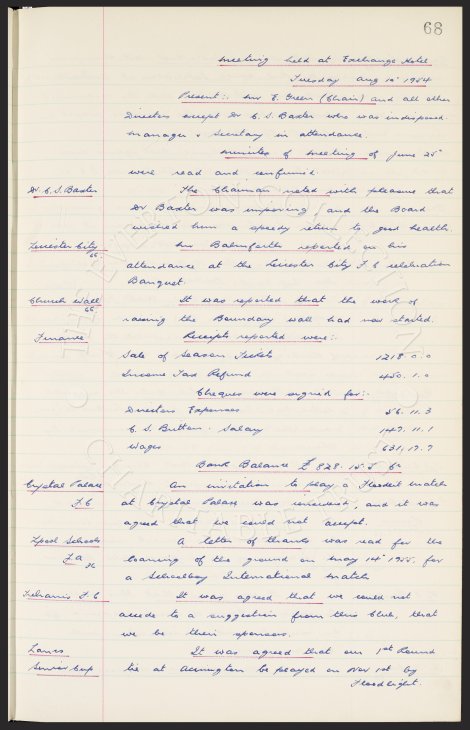 68
Meeting held at Exchange Hotel
Tuesday Aug 10th 1954
Present:- Mr E. Green (Chair) and all other
Directors except Dr C. S. Baxter who was indisposed
Manager & Secretary in attendance.
Minutes of Meeting of June 25th
were read and confirmed.
Dr C. S. Baxter The Chairman noted with pleasure that
Dr Baxter was improving, and the Board
wished him a speedy return to good health.
Leicester City Mr Balmforth reported on his
66
attendance at the Leicester City F.C celebration
Banquet.
Church Wall It was reported that the work of
66
raising the Boundary wall had now started.
Finance Receipts reported were:-
Sale of Season Tickets 1218. 0. 0
Income Tax Refund 450. 1. 0
Cheques were signed for:-
Directors Expenses 56. 11. 3
C. S. Britton. Salary 147. 11. 1
Wages 631. 17. 7
Bank Balance £ 828. 15. 5
Crystal Palace An invitation to play a Floodlit match
F.C at Crystal Palace was received, and it was
agreed that we could not accept.
Lpool Schools A letter of thanks was read for the
F.A loaning of the ground on May 14th 1955, for
a Schoolboy International match
F.C It was agreed that we could not
accede to a suggestion from this Club, that
we be their sponsors.
Lancs It was agreed that our 1st Round
Senior Cup tie at Accrington be played on Nov 1st by
Floodlight.